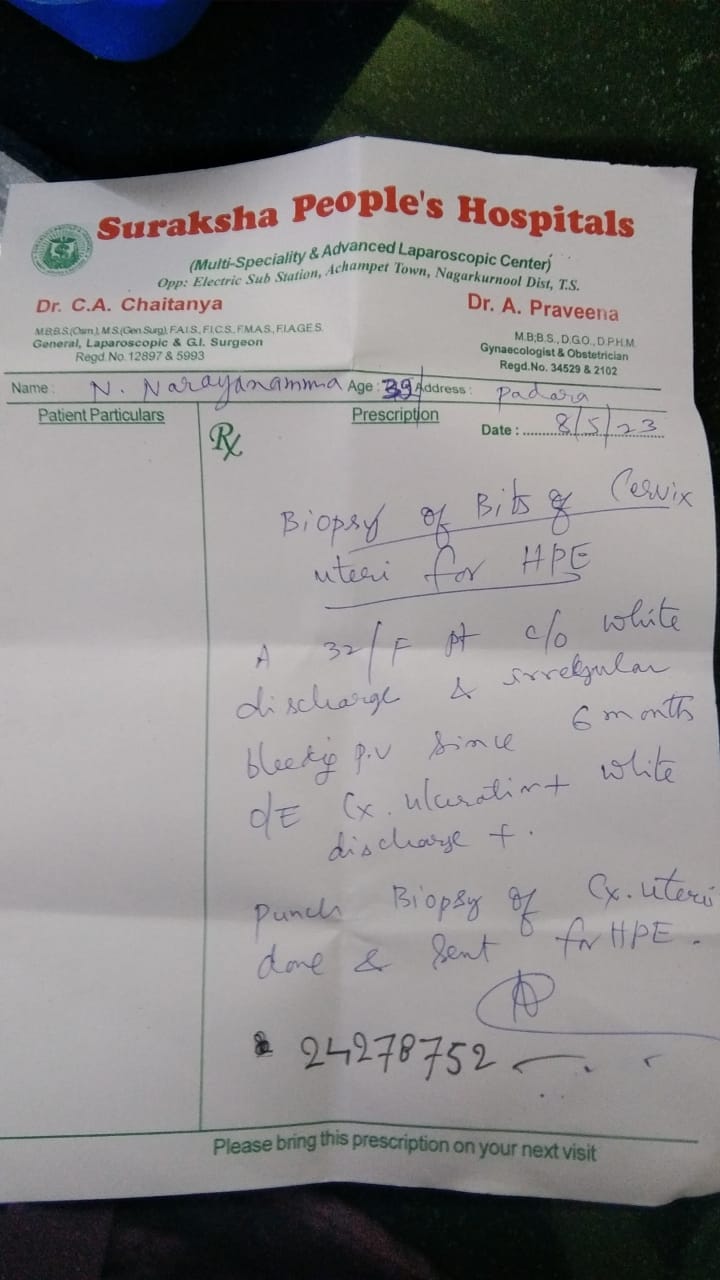 Suraksha People's Hospitals
(Multi-Speciality & Advanced Laparoscopic Center)
Opp: Electric Sub Station, Achampet Town, Nagarkurnool Dist, T.S.
Dr. C.A. Chaitanya
M.B.B.S.(Osm), M.S.(Gen.Surg), F.A.I.S., F.I.C.S., F.M.A.S., F.I.A.G.E.S.
General, Laparoscopic & G.I. Surgeon
Regd.No.12897 & 5993
Dr. A. Praveena
M.B;B.S., D.G.O., D.P.H.M.
Gynaecologist & Obstetrician
Regd.No. 34529 & 2102
Name: N. Narayanamma Age: 39 Address: padara
Patient Particulars
Prescription
Date: 8/5/23
Rx
Biopsy of Bits of Cervix
uteri for HPE
A 32/F pt c/o white
discharge & irregular
bleedig p.v since 6 months
O/E Cx. ulceration + white
discharge +.
punch Biopsy of Cx. uteri
done & sent for HPE.
24278752
Please bring this prescription on your next visit